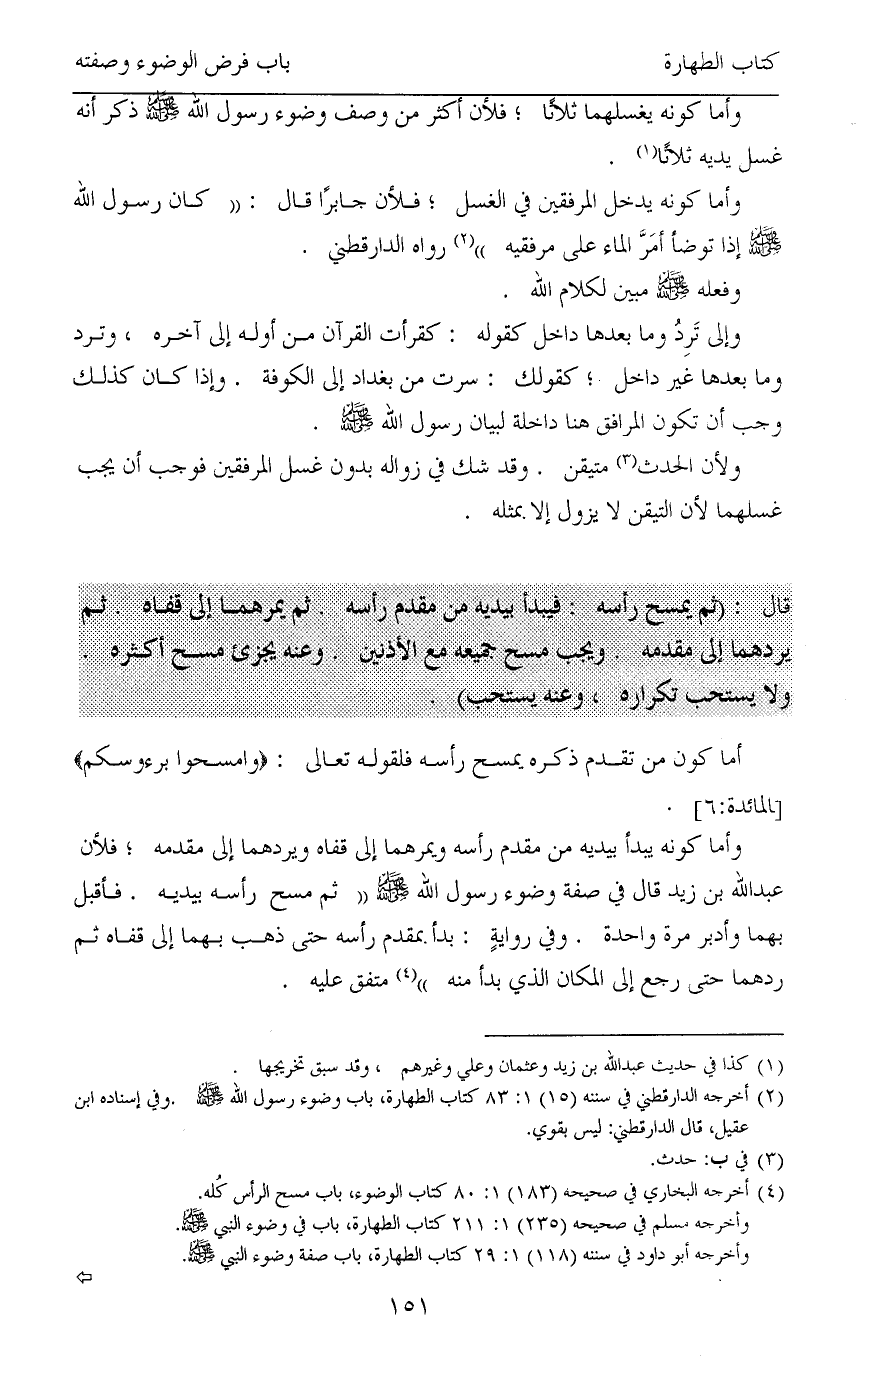 كتاب الطهارة باب فرض الوضوء وصفته
وأما كونه يغسلهما ثلاثًا ؛ فلأن أكثر من وصف وضوء رسول الله ﷺ ذكر أنه
غسل يديه ثلاثًا(١) .
وأما كونه يدخل المرفقين في الغسل ؛ فلأن جابرًا قال : (( كان رسول الله
ﷺ إذا توضأ أمَرَّ الماء على مرفقيه ))(٢) رواه الدارقطني .
وفعله ﷺ مبين لكلام الله .
وإلى تَرِدُ وما بعدها داخل كقوله : كقرأت القرآن من أوله إلى آخره ، وترد
وما بعدها غير داخل ؛ كقولك : سرت من بغداد إلى الكوفة . وإذا كان كذلك
وجب أن تكون المرافق هنا داخلة لبيان رسول الله ﷺ .
ولأن الحدث(٣) متيقن . وقد شك في زواله بدون غسل المرفقين فوجب أن يجب
غسلهما لأن التيقن لا يزول إلا بمثله .
قال : (ثم يمسح رأسه : فيبدأ بيديه من مقدم رأسه . ثم يمرهما إلى قفاه . ثم
يردهما إلى مقدمه . ويجب مسح جميعه مع الأذنين . وعنه يجزئ مسح أكثره .
ولا يستحب تكراره ، وعنه يستحب) .
أما كون من تقدم ذكره يمسح رأسه فلقوله تعالى : ﴿وامسحوا برءوسكم﴾
[المائدة:٦] .
وأما كونه يبدأ بيديه من مقدم رأسه ويمرهما إلى قفاه ويردهما إلى مقدمه ؛ فلأن
عبدالله بن زيد قال في صفة وضوء رسول الله ﷺ (( ثم مسح رأسه بيديه . فأقبل
بهما وأدبر مرة واحدة . وفي روايةٍ : بدأ بمقدم رأسه حتى ذهب بهما إلى قفاه ثم
ردهما حتى رجع إلى المكان الذي بدأ منه ))(٤) متفق عليه .
(١) كذا في حديث عبدالله بن زيد وعثمان وعلي وغيرهم ، وقد سبق تخريجها .
(٢) أخرجه الدارقطني في سننه (١٥) ١: ٨٣ كتاب الطهارة، باب وضوء رسول الله ﷺ .وفي إسناده ابن
عقيل، قال الدارقطني: ليس بقوي.
(٣) في ب: حدث.
(٤) أخرجه البخاري في صحيحه (١٨٣) ١: ٨٠ كتاب الوضوء، باب مسح الرأس كُله.
وأخرجه مسلم في صحيحه (٢٣٥) ١: ٢١١ كتاب الطهارة، باب في وضوء النبي ﷺ.
وأخرجه أبو داود في سننه (١١٨) ١: ٢٩ كتاب الطهارة، باب صفة وضوء النبي ﷺ.
⇦
١٥١